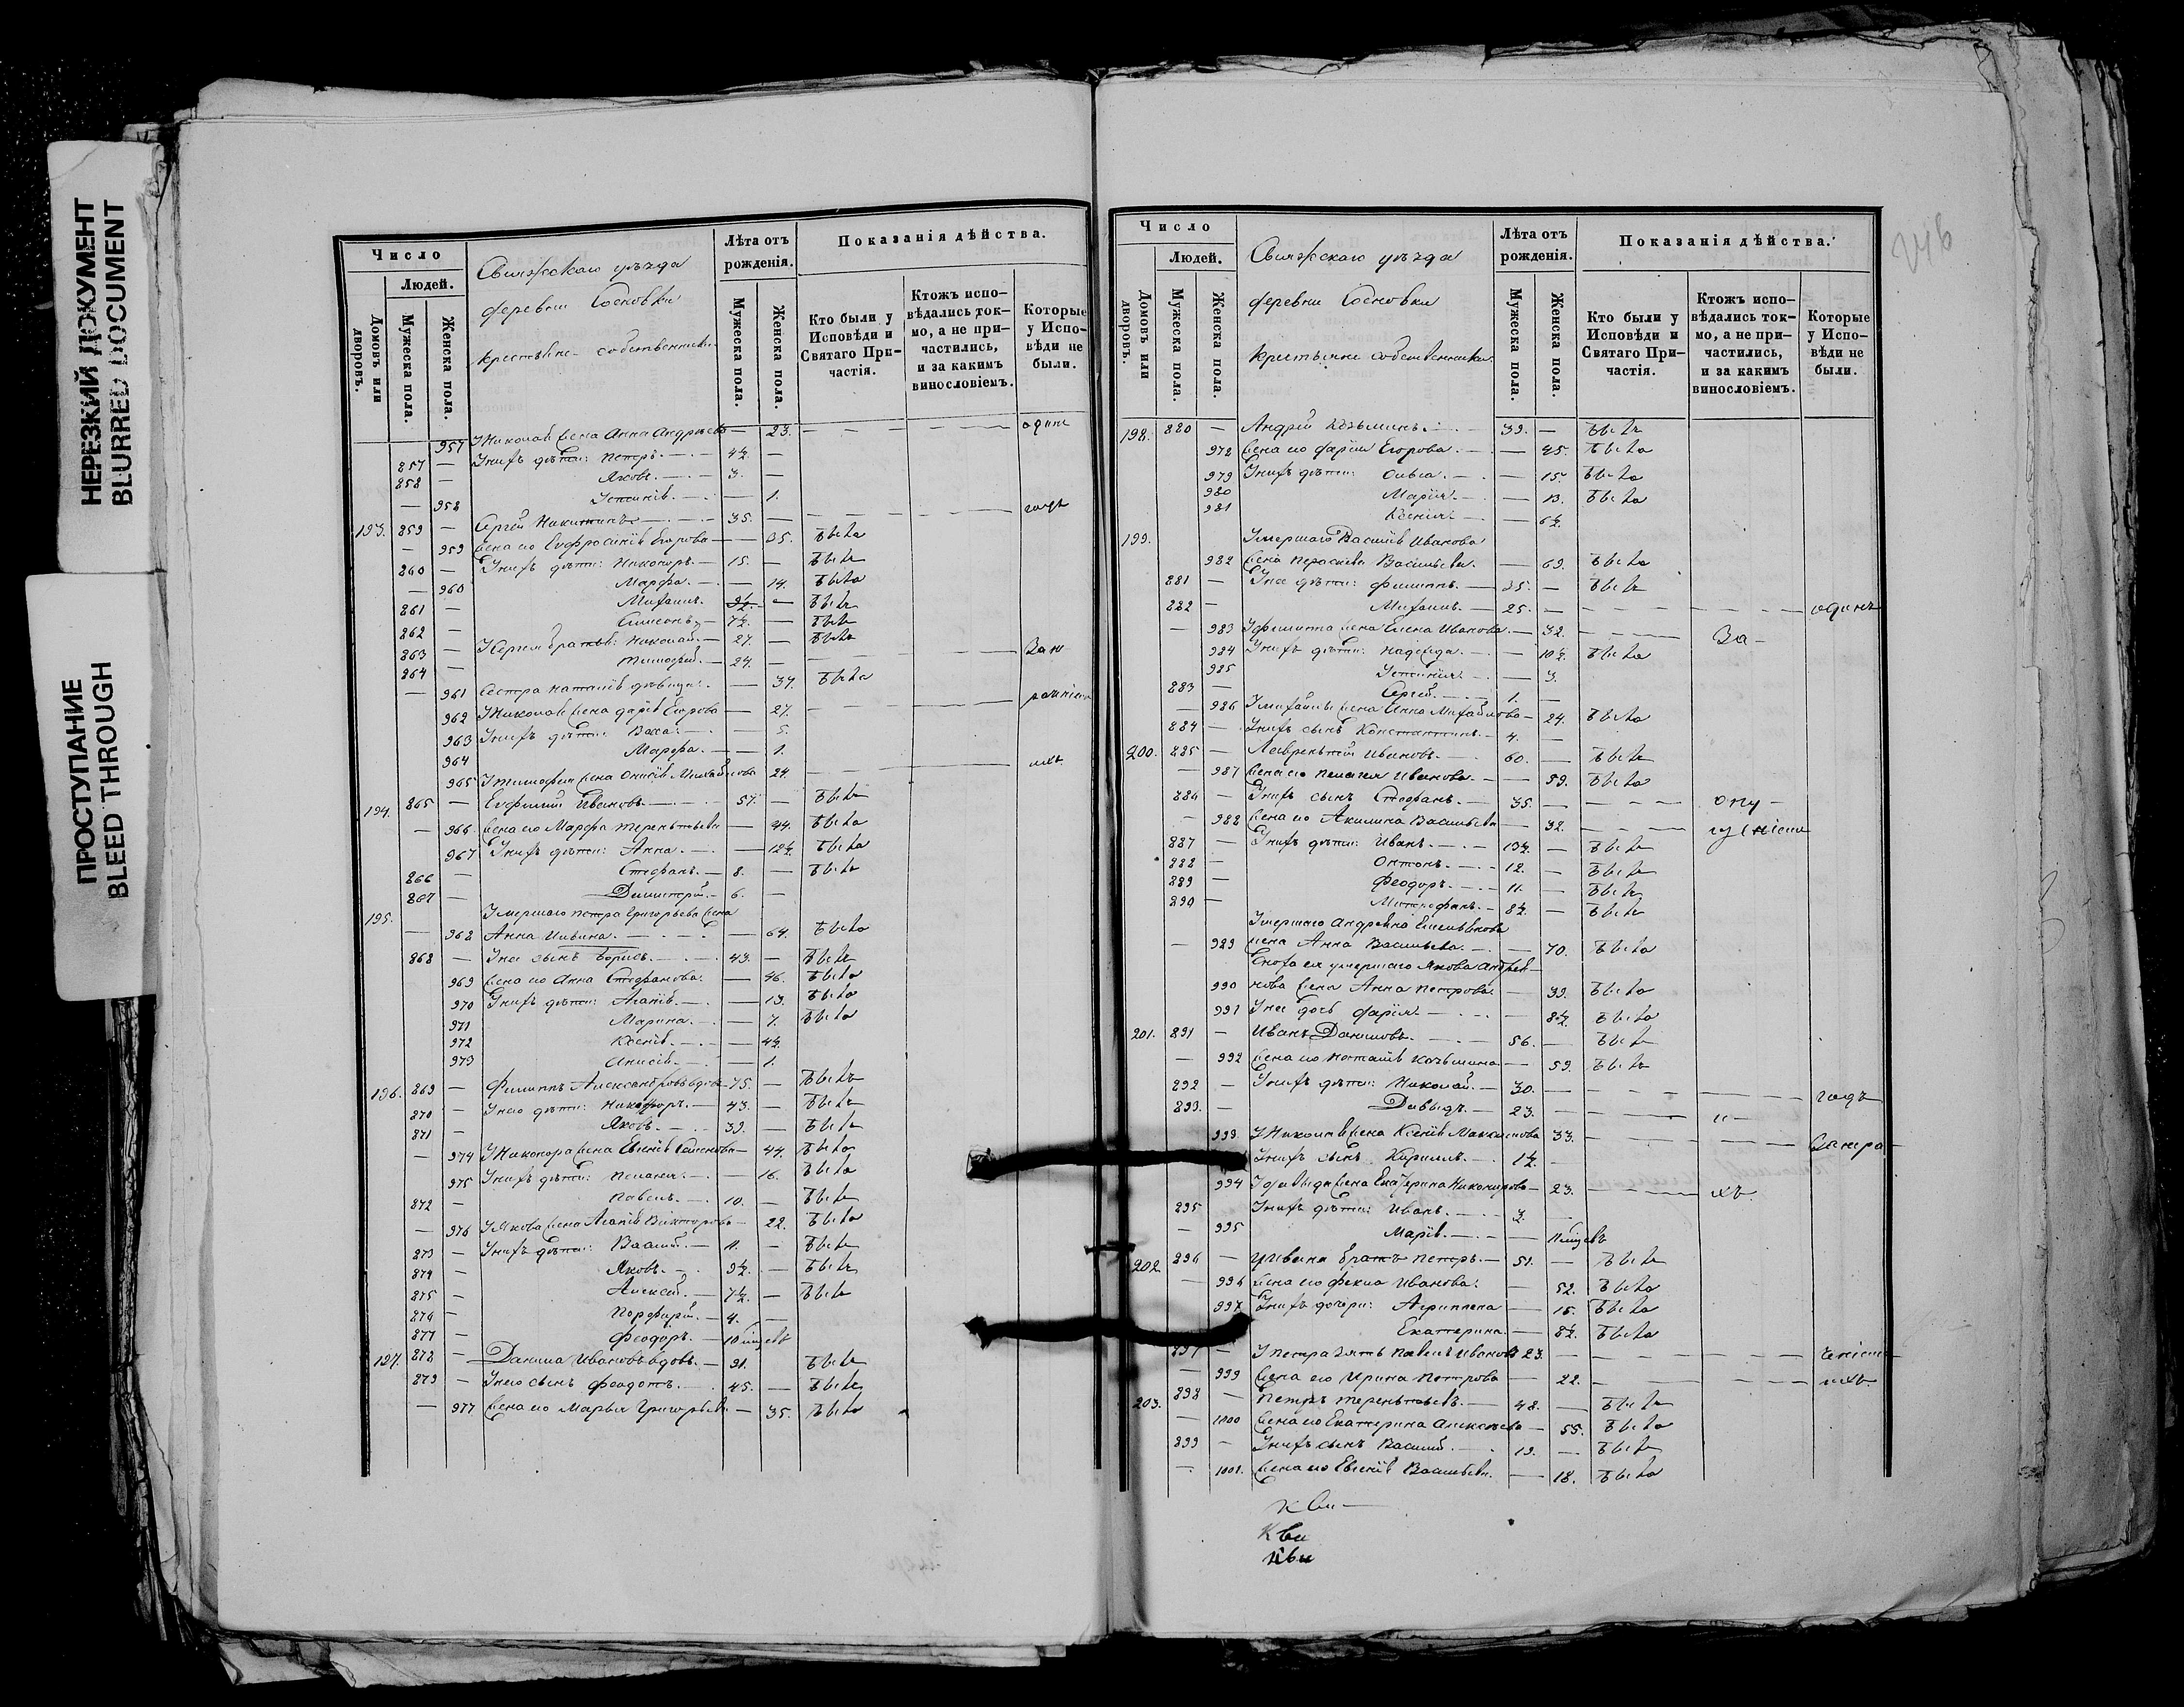 НЕРЕЗКИЙ ДОКУМЕНТ
BLURRED DOCUMENT
ПРОСТУПАНИЕ
BLEED THROUGH
Число
Людей.
Домовъ или дворовъ.
Мужеска пола.
Женска пола.
Свияжскаго уѣзда
деревни Сосновки
крестьяне собственники
Лѣта отъ рожденія.
Мужеска пола.
Женска пола.
Показанія дѣйства.
Кто были у Исповѣди и Святаго Причастія.
Ктожъ исповѣдались токмо, а не причастились, и за какимъ винословіемъ.
Которые у Исповѣди не были.
957 У Николая жена Анна Андреева — 23.
857 — У нихъ дѣти: Петръ. 4½ —
858 — Яковъ. 3. —
— 958 Устинія. — 1.
193. 859 — Сергѣй Никитинъ 35. —
— 959 Жена его Евфросинія Егорова — 35. Была
860 — У нихъ дѣти: Никаноръ. 15. — Былъ
— 960 Марфа. — 14. Была
861 — Михаилъ. 9½ — Былъ
862 — Симеонъ 7½ — Былъ
863 — Николай 27. — Былъ
864 — Тимофей. 24. —
— 961 Сестра Наталія дѣвица. — 37. Была
962 У Николая жена Дарія Егорова — 27.
963 У нихъ дѣти: Васса — 5.
964 Марфа. — 1.
965 У Тимофея жена Онисія Михайлова 24.
194. 865 — Евфимій Ивановъ. 57. — Былъ
— 966 Жена его Марфа Терентьева — 44. Была
967 У нихъ дѣти: Анна. — 12½ Была
866 — Стефанъ. 8. — Былъ
867 — Димитрій. 6. —
195. Умершаго Петра Григорьева жена
— 968 Анна Ильина. — 64. Была
868 — У нее сынъ Борисъ. 43. — Былъ
969 Жена его Анна Стефанова. — 46. Была
970 У нихъ дѣти: Агапія. — 13. Была
971 Марина. — 7. Была
972 Ксенія. — 4½
973 Анисія. — 1.
196. 869 — Филиппъ Александровъ вдовъ 75. — Былъ
870 — У него дѣти: Никифоръ. 43. — Былъ
871 — Яковъ. 39. — Былъ
— 974 У Никифора жена Евгенія 44. Была
975 У нихъ дѣти: Пелагея. — 16. Была
872 — Павелъ. 10. — Былъ
— 976 У Якова жена Агапія Викторова — 22. Была
873 — У нихъ дѣти: Василій. 11. — Былъ
874 — Яковъ. 9½ — Былъ
875 — Алексѣй. 7½ — Былъ
876 — Порфирій. 4. —
877 — Феодоръ. 10 мѣсяцевъ
197. 878 — Данила Ивановъ вдовъ. 91. Былъ
879 — У него сынъ Феодотъ. 45. — Былъ
— 977 Жена его Марья Григорьева — 35. Была
Число
Людей.
Домовъ или дворовъ.
Мужеска пола.
Женска пола.
Свияжскаго уѣзда
деревни Сосновки
крестьяне собственники
Лѣта отъ рожденія.
Мужеска пола.
Женска пола.
Показанія дѣйства.
Кто были у Исповѣди и Святаго Причастія.
Ктожъ исповѣдались токмо, а не причастились, и за какимъ винословіемъ.
Которые у Исповѣди не были.
198. 880 — Андрей Козьминъ. 39. — Былъ
978 Жена его Дарія Егорова. — 45. Была
979 У нихъ дѣти: Ольга. — 15. Была
980 Марія. — 13. Была
981 Ксенія. — 6½
199. Умершаго Василія Иванова
982 Жена Параскева Васильева. — 69. Была
881 — У нее дѣти: Филиппъ. 35. — Былъ
882 — Михаилъ. 25. — одинъ
— 983 У Филиппа жена Елена Иванова. 32. За
984 У нихъ дѣти: Надежда. — 10½ Была
985 Устинія. — 3.
883 — Сергѣй. 1. —
— 986 У Михаила жена Анна Михайлова 24. Была
884 — У нихъ сынъ Константинъ. 4. —
200. 885 — Лаврентій Ивановъ. 60. — Былъ
— 987 Жена его Пелагея Иванова. — 59. Была
886 — У нихъ сынъ Стефанъ. 35. — опу-
— 988 Жена его Акилина Васильева — 32.
887 — У нихъ дѣти: Иванъ. 13½ — Былъ
888 — Антонъ. 12. — Былъ
889 — Феодоръ. 11. — Былъ
890 — Митрофанъ. 8½ — Былъ
Умершаго Андреяна Емельянова
— 989 жена Анна Васильева. — 70. Была
Сноха ея умершаго Якова Андрея-
990 нова жена Анна Петрова. — 39. Была
991 У нее дочь Дарія. — 8½ Была
201. 891 — Иванъ Даниловъ. 56. — Былъ
— 992 Жена его Наталія Козьмина — 59. Была
892 — У нихъ дѣти: Николай. 30. — годъ
893. — Давыдъ. 23. — и-
993 У Николая жена Ксенія Максимова 33.
У нихъ сынъ Кириллъ. 1½ —
994 У Давыда жена Екатерина Никанорова 23. ихъ
895 У нихъ дѣти: Иванъ. 3. —
— 995 Марія. — 11 мѣсяцевъ
202. 896 — У Ивана братъ Петръ. 51. — Былъ
— 996 Жена его Фекла Иванова. — 52. Была
997 У нихъ дочери: Агриппена — 15. Была
Екатерина. — 8½ Была
897 — У Петра зять Павелъ Ивановъ 23. —
— 999 Жена его Ирина Петрова — 22.
203. 898 — Петръ Терентьевъ. 48. — Былъ
— 1000 Жена его Екатерина Алексѣева — 55. Была
899 — У нихъ сынъ Василій. 19. — Былъ
— 1001. Жена его Евгенія Васильева. — 18. Была
246